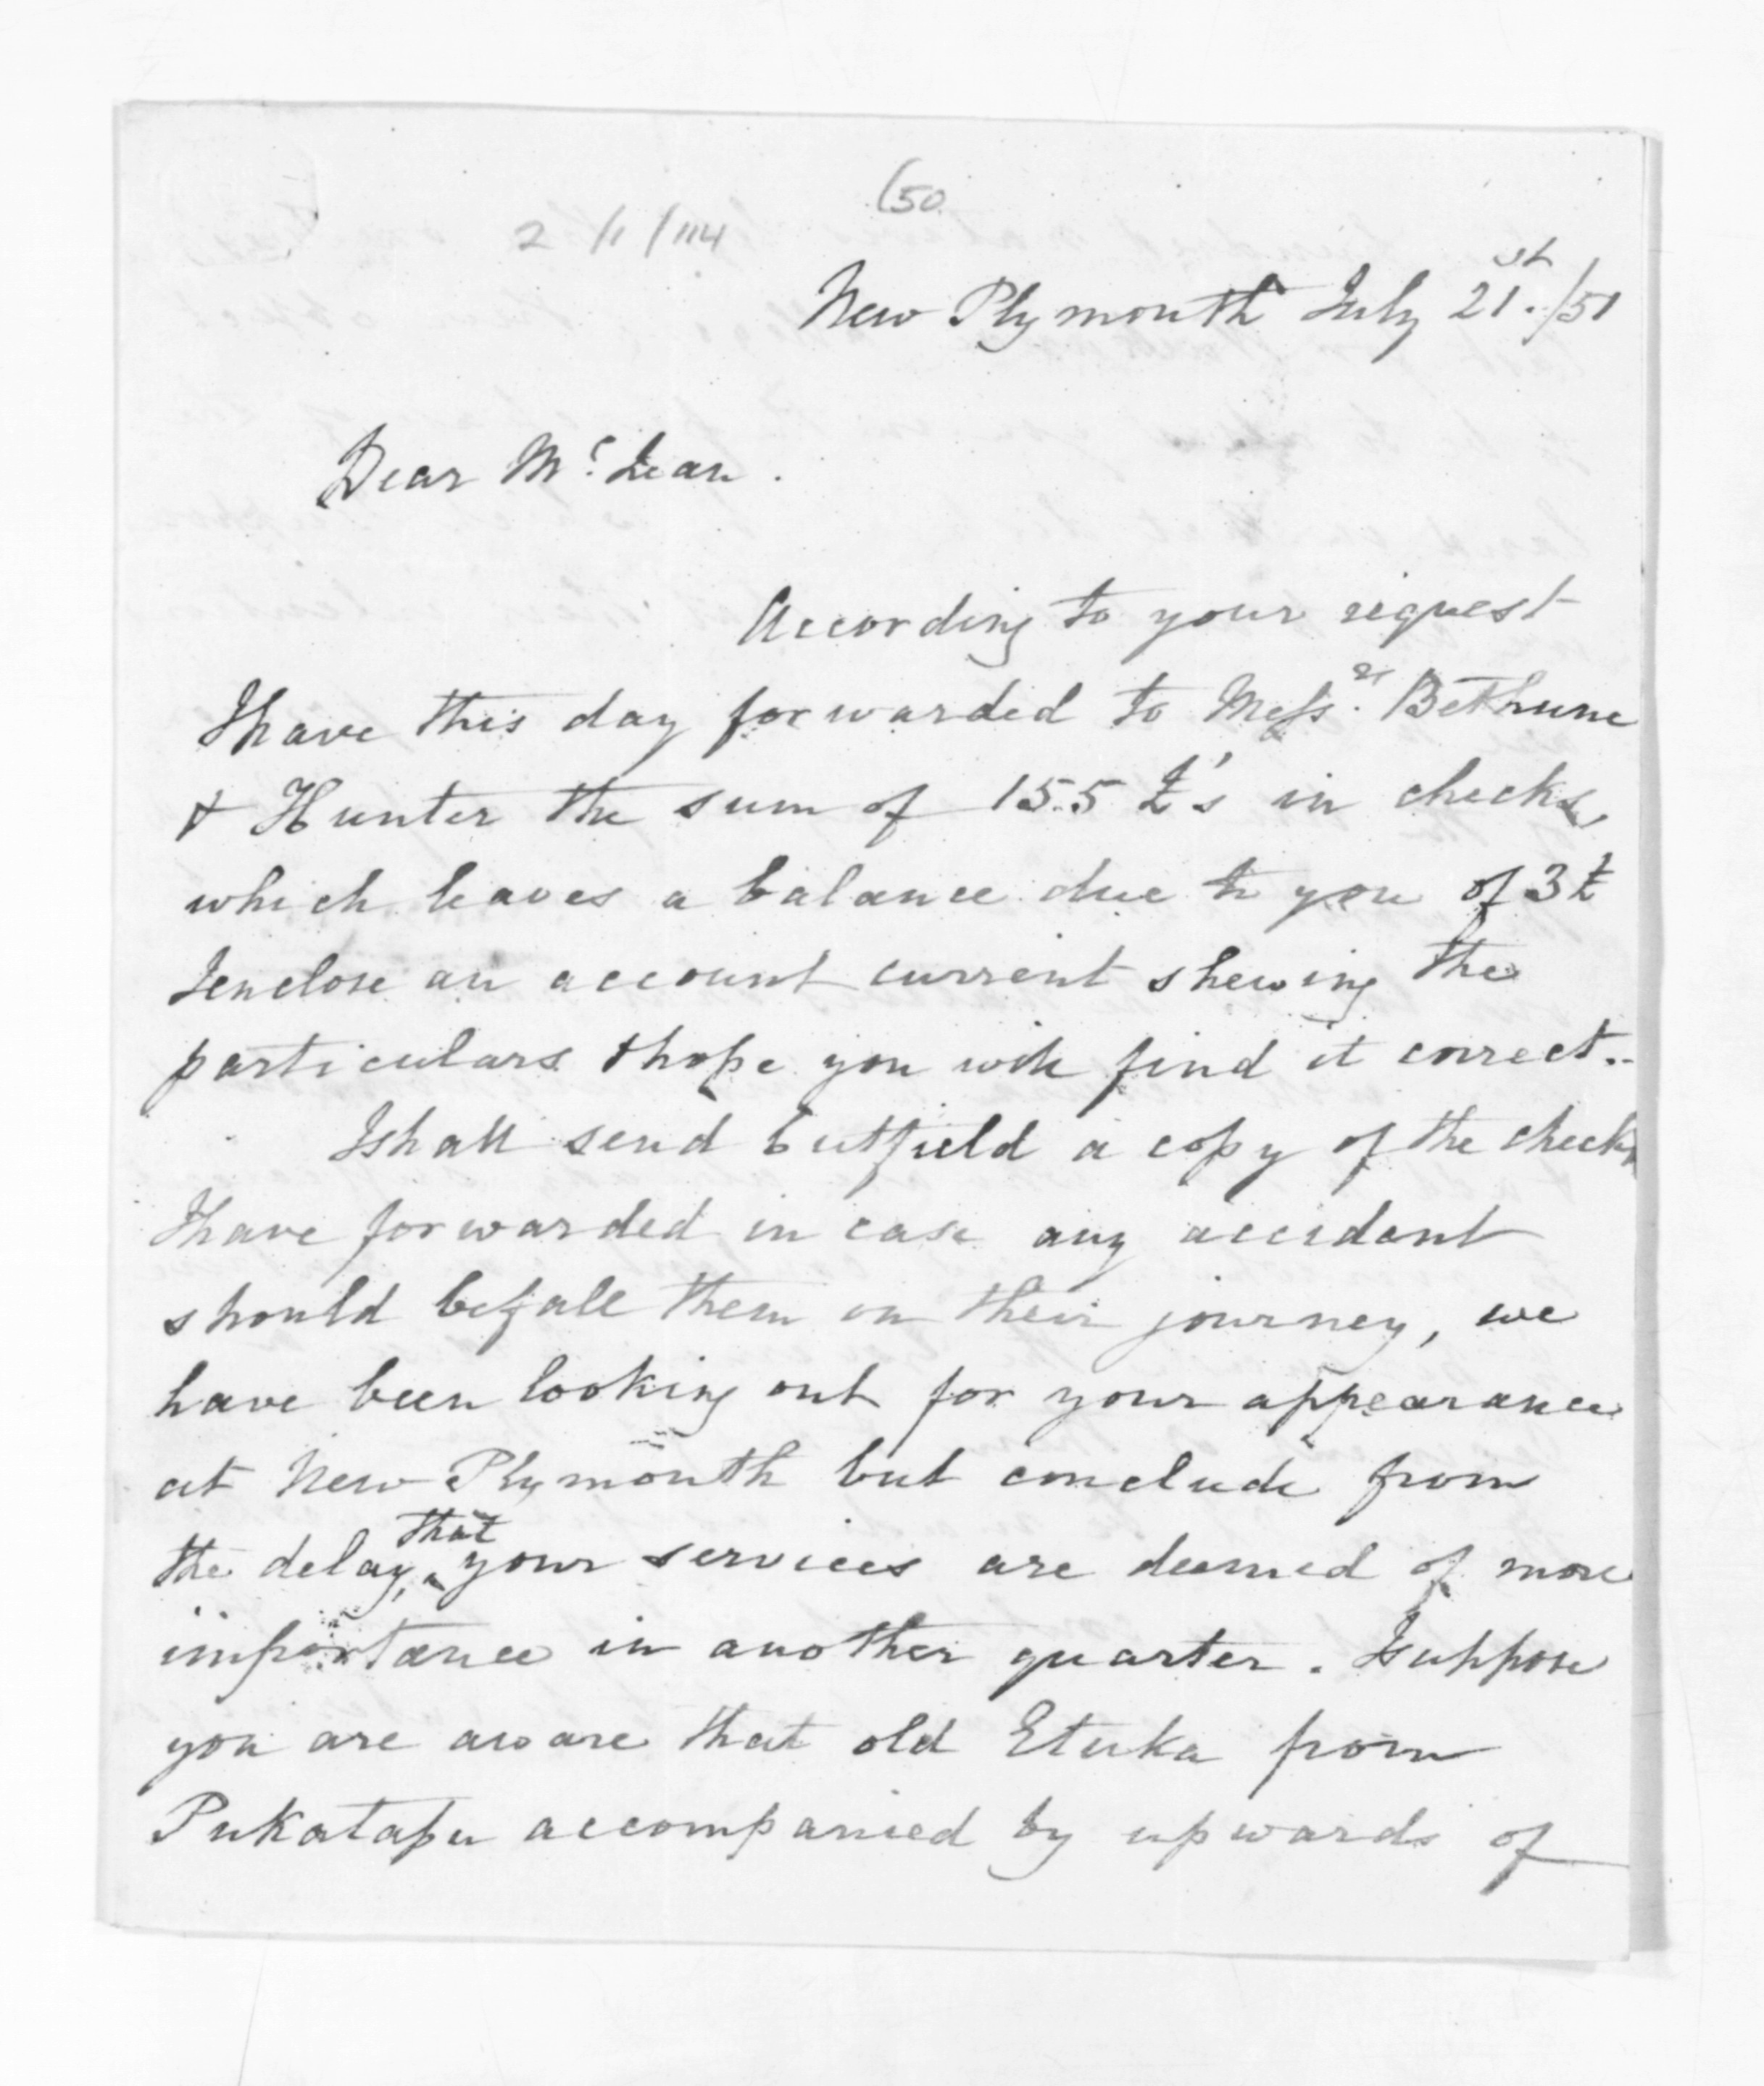 (50
2/1/114
New Plymouth July 21st./51
Dear Mc. Lean.
According to your request
I have this day forwarded to Messrs. Bethune
& Hunter the sum of 155 £'s in checks,
which leaves a balance due to you of 3£
I enclose an account current shewing the
particulars & hope you will find it correct..
I shall send Cutfield a copy of the checks
I have forwarded in case any accident
should befall them on their journey, we
have been looking out for your appearance
at New Plymouth but conclude from
the delay, that your services are deemed of more
importance in another quarter. I suppose
you are aware that old Etuka from
Pukatapu accompanied by upwards of